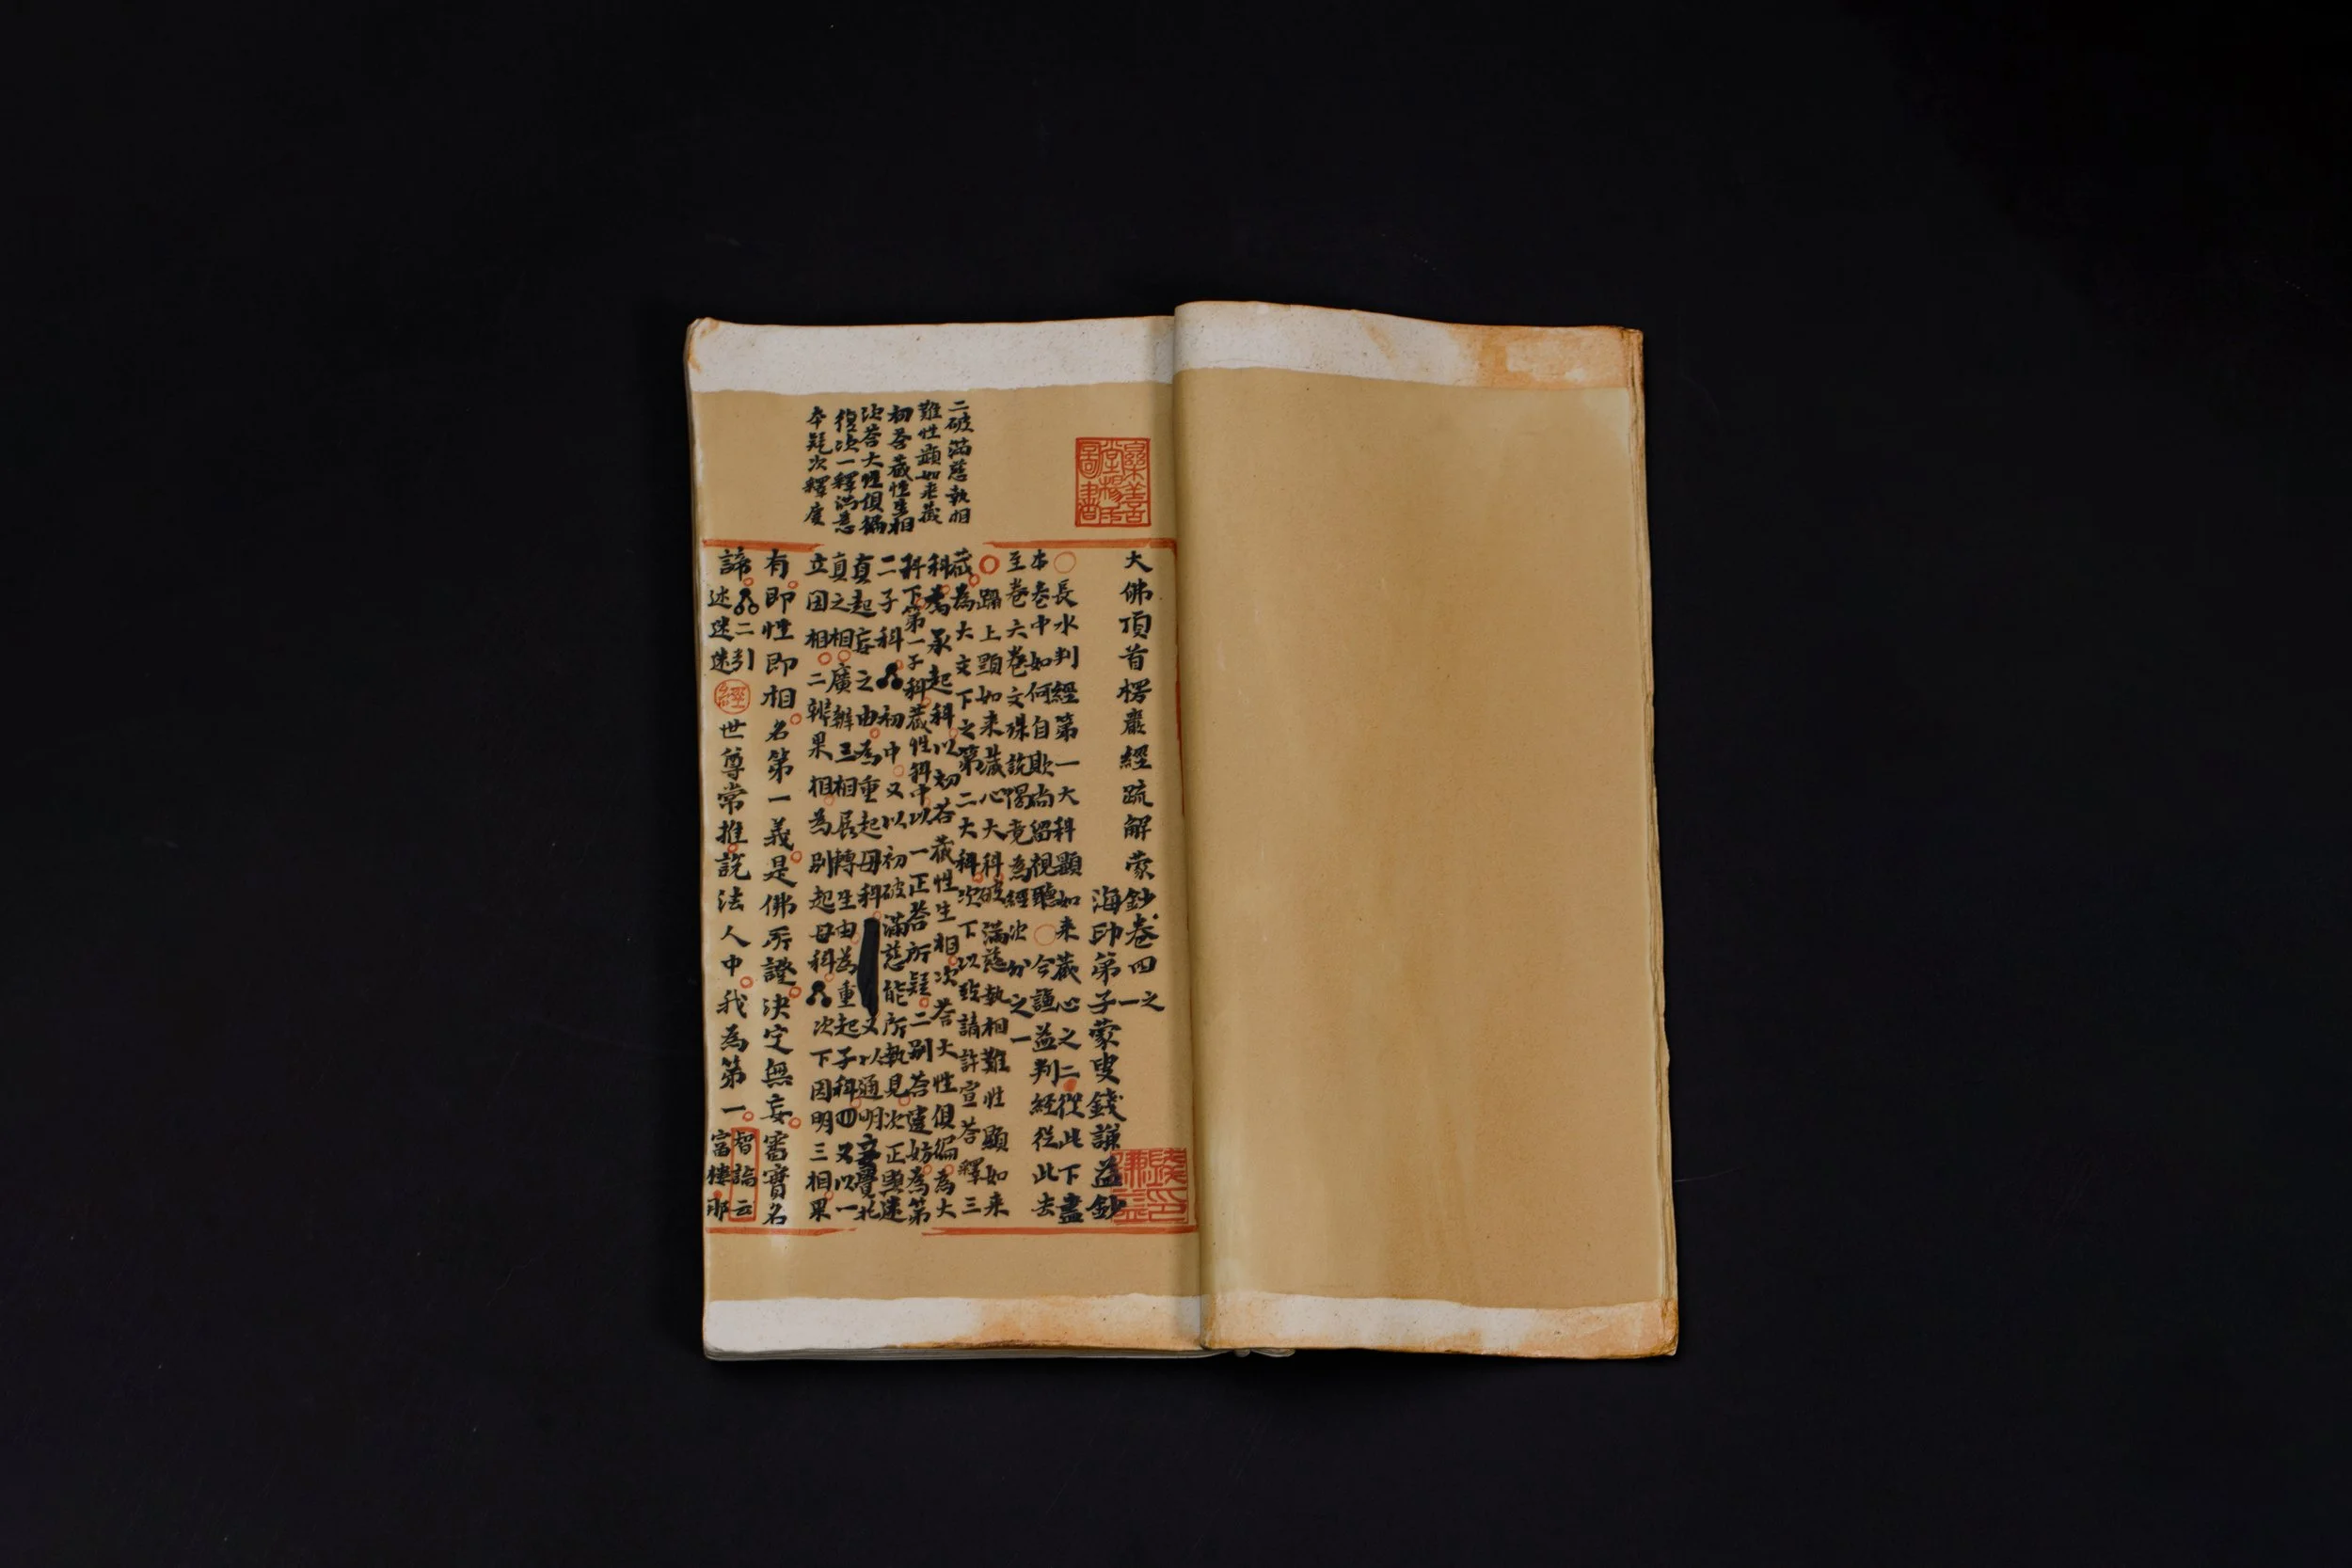 大佛頂首楞嚴經疏解蒙鈔卷四之一
海印弟子蒙叟錢謙益鈔
長水判經第一大科顯如来藏心之二從此下盡
本卷中如何自欺尚留視聽今謙益判経従此去
至卷六卷文殊說偈竟為經次分之一
躡上顯如来藏心大科破滿慈執相難性顯如来
藏為大文下之第二大科次下以致請許宣荅釋三
科為承起科以初荅藏性生相次荅大性俱徧為大
科下第一子科藏性科中以一正荅所疑二別荅違妨為第
二子科初中又以初破滿慈能所執見次正與迷
真起妄之由為重起母科又以通明
真之相廣辦三相展轉生由為重起子科四又以一
立因相二辨果相為別起母科次下因明三相果
有即性即相名第一義是佛所證決定無妄審實名
諦二引
述迷迷
經世尊常推說法人中我為第一
智論云
富樓那
二破滿慈執相
難性顯如来藏
初荅藏性生相
次荅大性俱徧
復次一釋滿慈
本疑次釋度
謙益